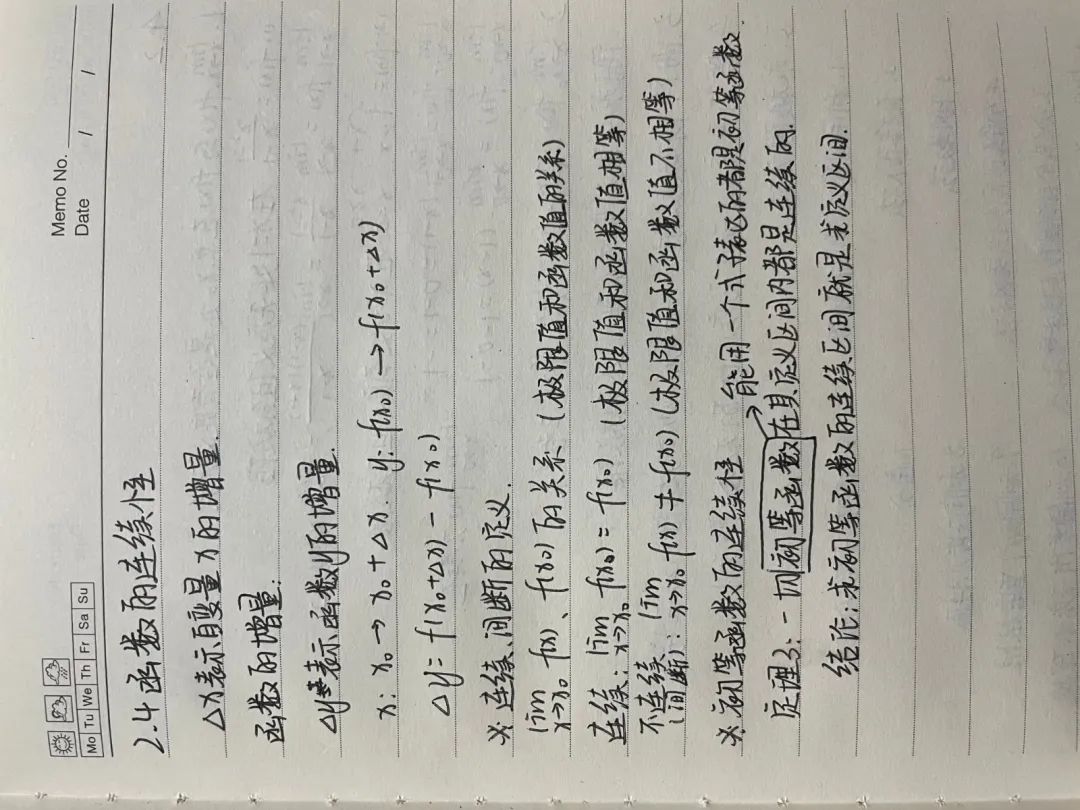 Memo No.
Date / /
Mo Tu We Th Fr Sa Su
2-4 函数的连续性
△x表示自变量x的增量.
函数的增量:
△y表示函数y的增量.
x: x₀ → x₀+△x y: f(x₀) → f(x₀+△x)
△y = f(x₀+△x) - f(x₀)
※连续、间断的定义.
lim x→x₀ f(x)、f(x₀)的关系 (极限值和函数值的关系)
连续: lim x→x₀ f(x₀) = f(x₀) (极限值和函数值相等)
不连续(间断): lim x→x₀ f(x) ≠ f(x₀) (极限值和函数值不相等)
※初等函数的连续性 → 能用一个式子表达的都是初等函数.
定理3: 一切初等函数在其定义区间内都是连续的.
结论: 求初等函数的连续区间就是求定义区间.